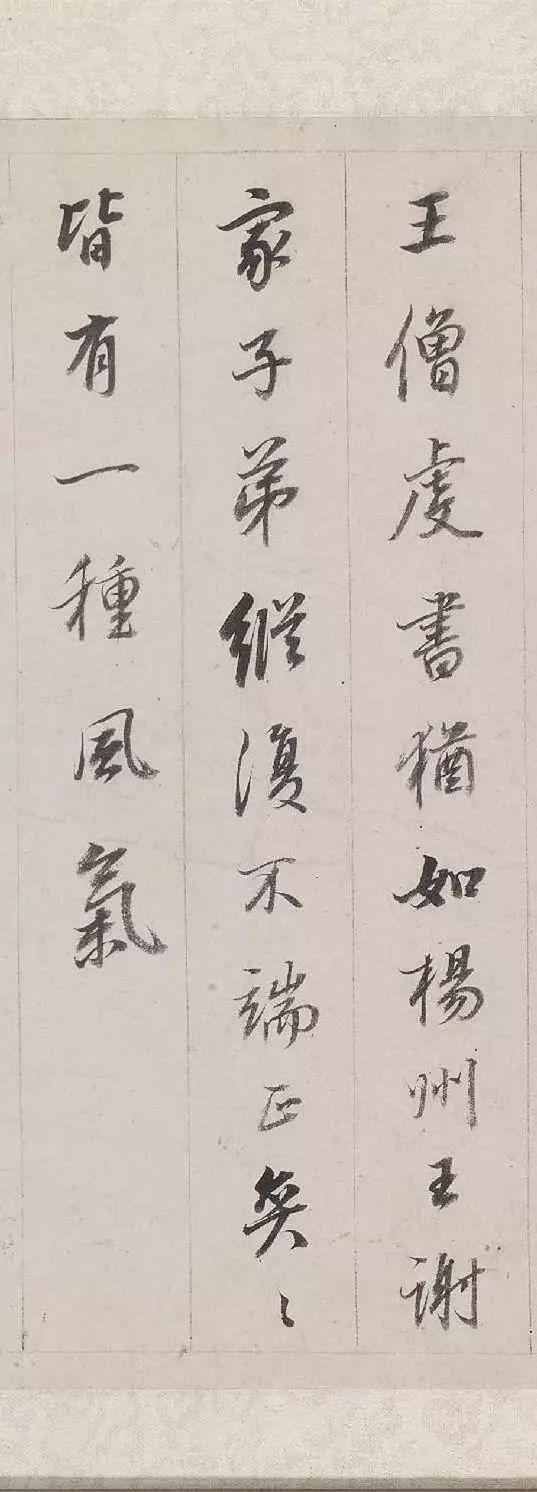 王僧虔書猶如楊州王謝
家子弟縱復不端正奕〻
皆有一種風氣